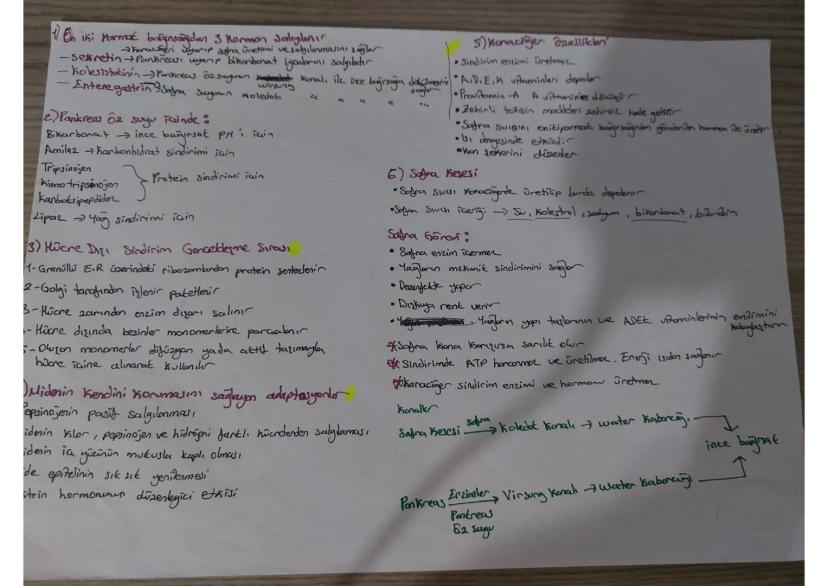 1) On iki Parmak bağırsağından 3 Hormon Salgılanır
→ Karaciğeri uyarıp safra üretimi ve salgılanmasını sağlar
- Sekretin → Pankreası uyarıp bikarbonat iyonlarını salgılatır
- Kolesistokinin → Pankreas öz suyunun wirsung kanalı ile ince bağırsağa dökülmesini sağlar
- Enteregastrin → Safra suyunun koledok " " " " "
2) Pankreas Öz suyu içinde:
Bikarbonat → ince bağırsak PH'ı için
Amilaz → Karbonhidrat sindirimi için
Tripsinojen
Kimotripsinojen
Karboksipeptidaz
Protein sindirimi için
Lipaz → Yağ sindirimi için
3) Hücre Dışı Sindirim Gerçekleşme Sırası
1- Granüllü E.R üzerindeki ribozomlardan protein sentezlenir
2- Golgi tarafından işlenir paketlenir
3- Hücre zarından enzim dışarı salınır
- Hücre dışında besinler monomerlerine parçalanır
- Oluşan monomerler difüzyon yada aktif taşımayla
hücre içine alınarak kullanılır
) Midenin Kendini Korumasını sağlayan adaptasyonlar
epsinojenin pasif salgılanması
idenin klor, pepsinojen ve hidrojeni farklı hücrelerden salgılaması
idenin iç yüzünün mukusla kaplı olması
de epitelinin sık sık yenilenmesi
trin hormonunun düzenleyici etkisi
5) Karaciğer Özellikleri
• Sindirim enzimi üretmez
• A,D,E,K vitaminleri depolar
• Provitamin-A A vitaminine dönüşür
• Zehirli toksin maddeleri zehirsiz hale getirir
• Safra sıvısını onikiparmak bağırsağından gönderilen hormon ile üretir
• Isı dengesinde etkilidir
• Kan şekerini düzenler
6) Safra Kesesi
• Safra sıvısı Karaciğerde üretilip burda depolanır
• Safra Sıvısı içeriği → Su, kolestrol, sodyum, bikarbonat, biluribin
Safra Görevi:
• Safra enzim içermez
• Yağların mekanik sindirimini sağlar
• Dezenfekte yapar
• Dışkıya renk verir
• Yağların yapı taşlarının ve ADEK vitaminlerinin emilimini kolaylaştırır
* Safra kana karışırsa sarılık olur
* Sindirimde ATP harcanmaz ve üretilmez. Enerji ısıdan sağlanır
* Karaciğer sindirim enzimi ve hormonu üretmez
Kanallar
Safra Kesesi safra → Koledok Kanalı → water kabarcığı →
ince bağırsak
Pankreas Enzimler → Virsung Kanalı → water kabarcığı
Pankreas
öz suyu